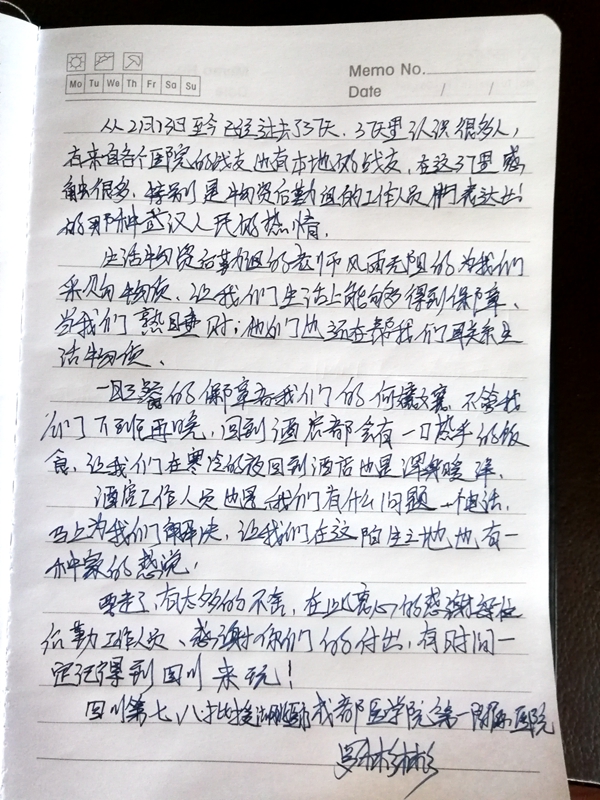 Memo No.
Mo Tu We Th Fr Sa Su
Date / /
从2月13日至今已经过去了3天、3天里认识很多人,
有来自各个医院的战友也有本地的战友,在这3天里感
触很多、特别是物资后勤组的工作人员们表达出
的那种武汉人民的热情。
生活物资后勤组的老师风雨无阻的为我们
采购物资、让我们生活上能够得到保障、
当我们熟睡时;他们也还在帮我们联系生
活物资、
一日三餐的保障者我们的何 、不管我
们下到 再晚,回到酒店都会有一口热乎的饭
食,让我们在寒冷的夜回到酒店也是浑身暖洋。
酒店工作人员也是,我们有什么问题一个电话,
马上为我们解决,让我们在这陌生之地也有一
种家的感觉!
要走了,有太多的不舍,在此衷心的感谢各位
后勤工作人员、感谢你们的付出,有时间一
定记得到四川来玩!
四川第七、八批援 队成都医学院第一附属医院
彬彬